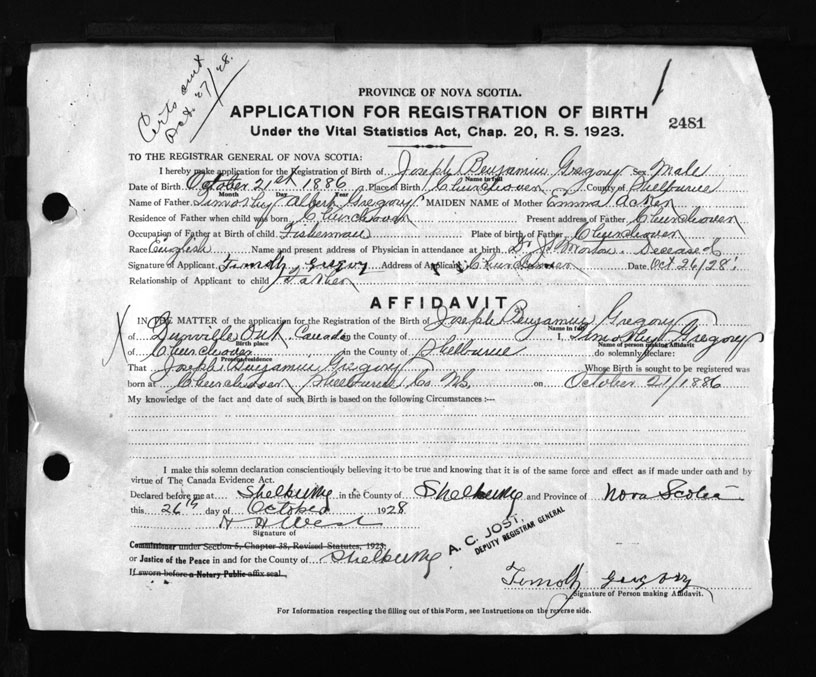 Certs out
Oct. 27/28.
PROVINCE OF NOVA SCOTIA.
APPLICATION FOR REGISTRATION OF BIRTH
Under the Vital Statistics Act, Chap. 20, R. S. 1923.
2481
TO THE REGISTRAR GENERAL OF NOVA SCOTIA:
I hereby make application for the Registration of Birth of Joseph Benjamin Gregory Sex Male
Name in full
Date of Birth October 21st 1886 Place of Birth Churchover County of Shelburne
Month Day Year
Name of Father Timothy Albert Gregory MAIDEN NAME of Mother Emma
Residence of Father when child was born Churchover Present address of Father Churchover
Occupation of Father at Birth of child Fisherman Place of birth of Father Churchover
Race English Name and present address of Physician in attendance at birth Dr J. Morton. Deceased
Signature of Applicant Timothy Gregory Address of Applicant Churchover Date Oct 26/28
Relationship of Applicant to child Father
AFFIDAVIT
IN THE MATTER of the application for the Registration of the Birth of Joseph Benjamin Gregory
Name in full
of Ont. Canada in the County of I, Timothy Gregory
Birth place Name of person making Affidavit
of Churchover in the County of Shelburne do solemnly declare:
Present residence
That Joseph Benjamin Gregory Whose Birth is sought to be registered was
born at Churchover Shelburne Co. N.S. on October 21/1886
My knowledge of the fact and date of such Birth is based on the following Circumstances :—
I make this solemn declaration conscientiously believing it to be true and knowing that it is of the same force and effect as if made under oath and by
virtue of The Canada Evidence Act.
Declared before me at Shelburne in the County of Shelburne and Province of Nova Scotia
this 26th day of October 1928
H H West
Signature of
A. C. JOST.
DEPUTY REGISTRAR GENERAL
Commissioner under Section 5, Chapter 38, Revised Statutes, 1923.
or Justice of the Peace in and for the County of Shelburne
If sworn before a Notary Public affix seal.
Timothy Gregory
Signature of Person making Affidavit.
For Information respecting the filling out of this Form, see Instructions on the reverse side.